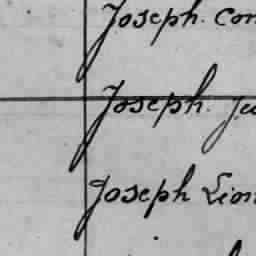 Joseph. Con
Joseph. Ju
Joseph Lion